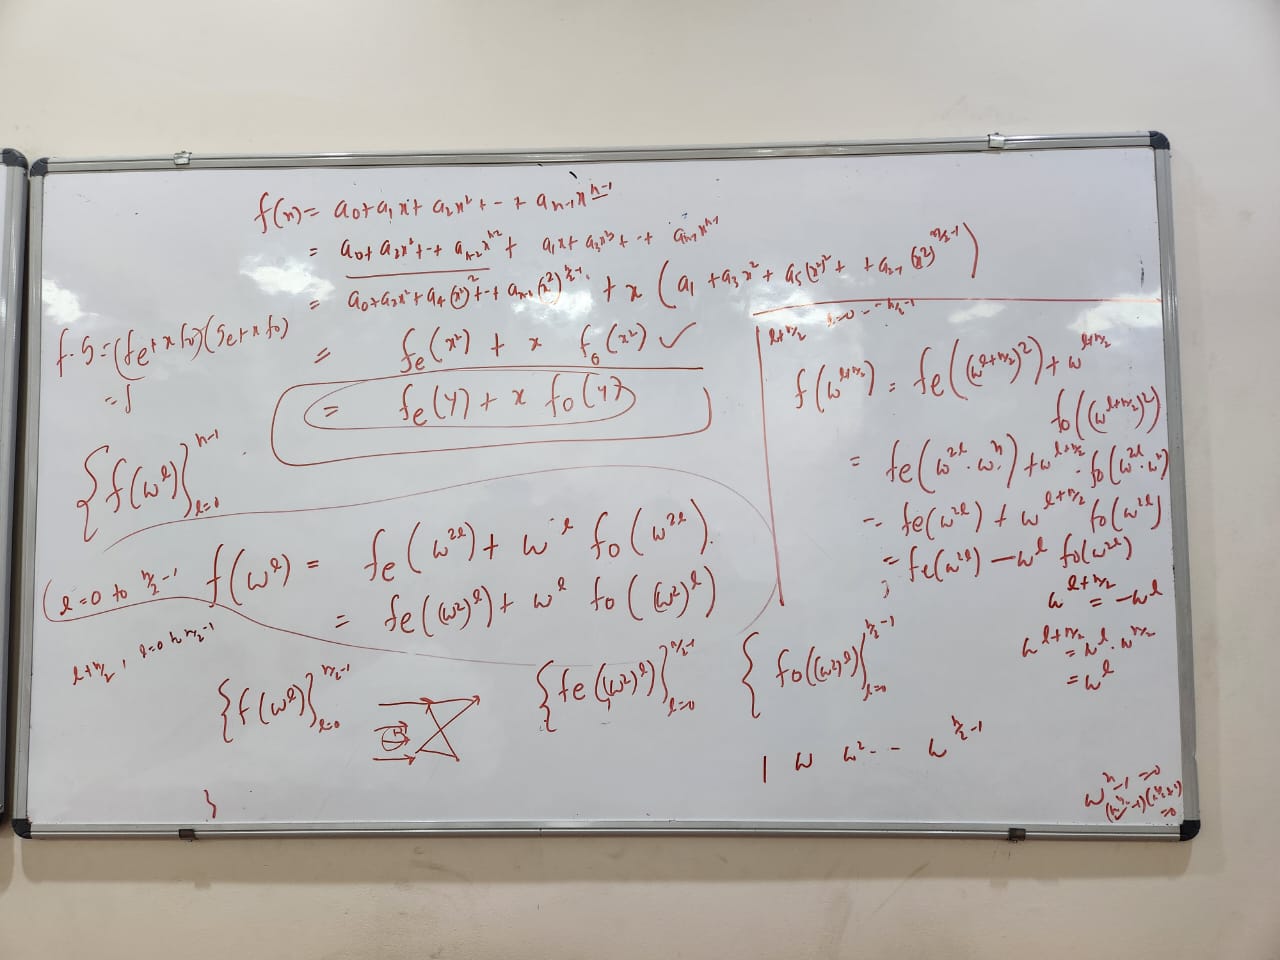 f(x) = a₀ + a₁x + a₂x² + - + aₙ₋₁xⁿ⁻¹
= a₀ + a₂x² + - + aₙ₋₂xⁿ⁻² + a₁x + a₃x³ + - + aₙ₋₁xⁿ⁻¹
= a₀ + a₂x² + a₄(x²)² + - + aₙ₋₂(x²)^(n/2-1) + x (a₁ + a₃x² + a₅(x²)² + + aₙ₋₁(x²)^(n/2-1))
f·g = (fe + x fo)(ge + x fo)
= f
= fe(x²) + x fo(x²) ✓
= fe(y) + x fo(y)
{f(ω^l)}_{l=0}^{n-1}
(l=0 to n/2-1
f(ω^l) = fe(ω^{2l}) + ω^l fo(ω^{2l}).
= fe((ω²)^l) + ω^l fo((ω²)^l)
l+n/2, l=0 to n/2-1
{f(ω^l)}_{l=0}^{n/2-1}
{fe((ω²)^l)}_{l=0}^{n/2-1}
{fo((ω²)^l)}_{l=0}^{n/2-1}
}
l+n/2 l=0 - - n/2-1
f(ω^{l+n/2}) = fe((ω^{l+n/2})²) + ω^{l+n/2}
fo((ω^{l+n/2})²)
= fe(ω^{2l}·ωⁿ) + ω^{l+n/2}·fo(ω^{2l}·ωⁿ)
= fe(ω^{2l}) + ω^{l+n/2} fo(ω^{2l})
= fe(ω^{2l}) - ω^l fo(ω^{2l})
ω^{l+n/2} = -ω^l
ω^{l+n/2} = ω^l·ω^{n/2}
= ω^l
1 ω ω² - - ω^{n/2-1}
ωⁿ-1 = 0
(ω^{n/2}-1)(ω^{n/2}+1)
=0